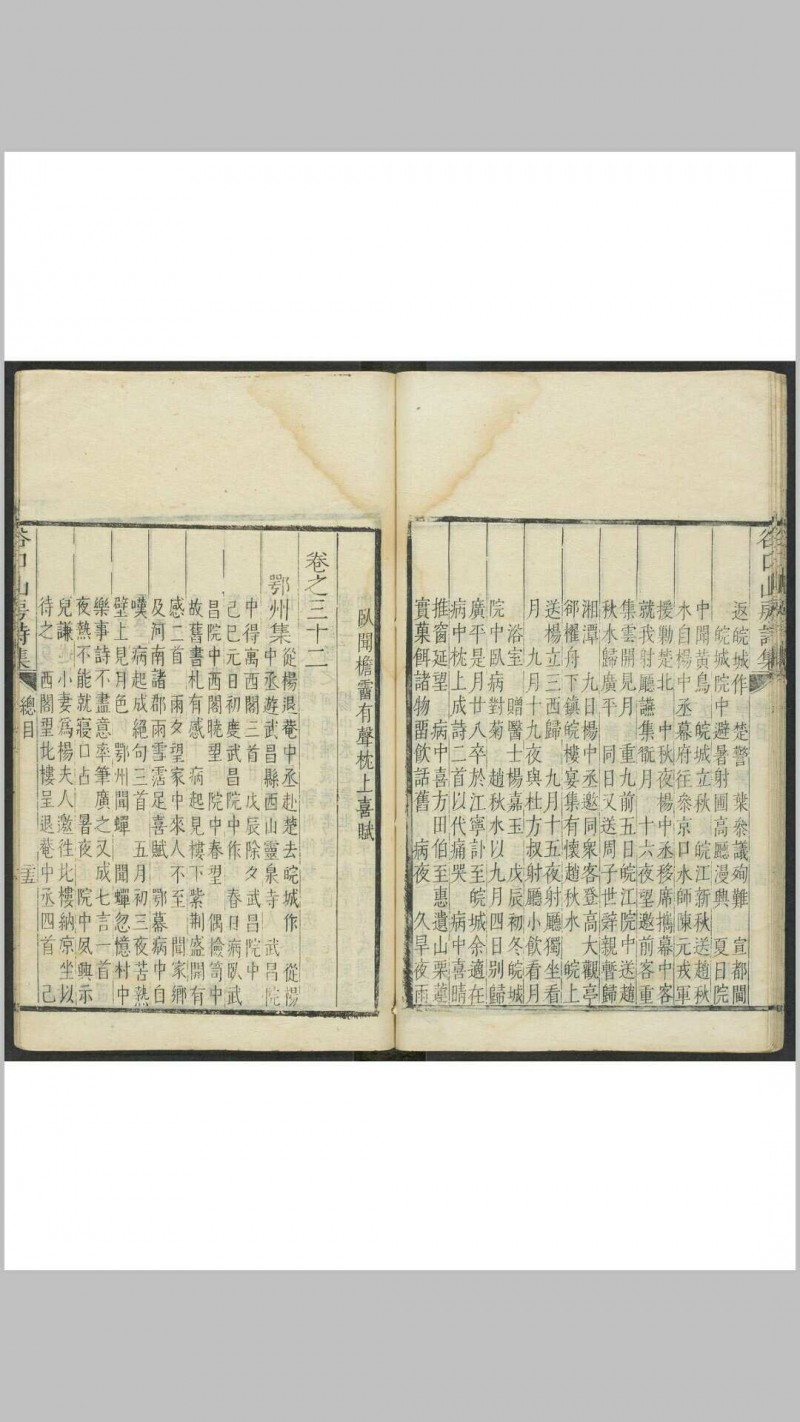 返皖城作　楚警　葉叅議殉難　宣都閫
皖城院中避暑射圃高廳漫興　夏日院
中聞黃鳥　皖城立秋　皖江新秋送趙秋
水自楊中丞幕府徃叅京口水師陳元戎軍
援勦楚北　中秋夜楊中丞移席攜幕中客
就我射廳讌集翫月　十六夜望邀前客重
集雲開見月　重九前五日皖江院中送趙
秋水歸廣平　同日又送周子世辭親暫歸
湘潭　九日楊中丞邀同衆客登高大觀亭
郤懼舟下鎮皖樓宴集有懷趙秋水　皖上
送楊立三西歸　九月十五夜射廳獨坐看
月　九月十九夜與杜方叔射廳小飲看月
浴室　贈醫士楊嘉玉　戊辰初冬皖城
院中臥病對菊　趙秋水以九月四日别歸
廣平是月廿八卒於江寧訃至皖城余適在
病中枕上成詩二首以代痛哭　病中喜晴
推窗延望　病中喜方田伯至惠遺山栗蓮
實菓餌諸物畱飲話舊　病夜　久旱夜雨
臥聞檐霤有聲枕上喜賦
卷之三十二
鄂州集
從楊退菴中丞赴楚去皖城作　從楊
中丞遊武昌縣西山靈泉寺　武昌院
中得寓西閣三首　戊辰除夕武昌院中
己巳元日初慶武昌院中作　春日病臥武
昌院中西閣晀望　院中春望　偶撿笥中
故舊書札有感　病起見樓下紫荆盛開有
感二首　雨夕望家中來人不至　聞家鄉
及河南諸郡雨雪霑足喜賦　鄂幕病中自
嘆　病起成絕句三首　五月初三夜苦熱
壁上見月色　鄂州聞蟬　聞蟬忽憶村中
樂事詩不盡意率筆廣之又成七言一首
夜熱不能就寢口占　暑夜　院中夙興示
兒謙　小妻爲楊夫人邀徃北樓納凉坐以
待之　西閣望北樓呈退菴中丞四首　己
谷口山房詩集
總目